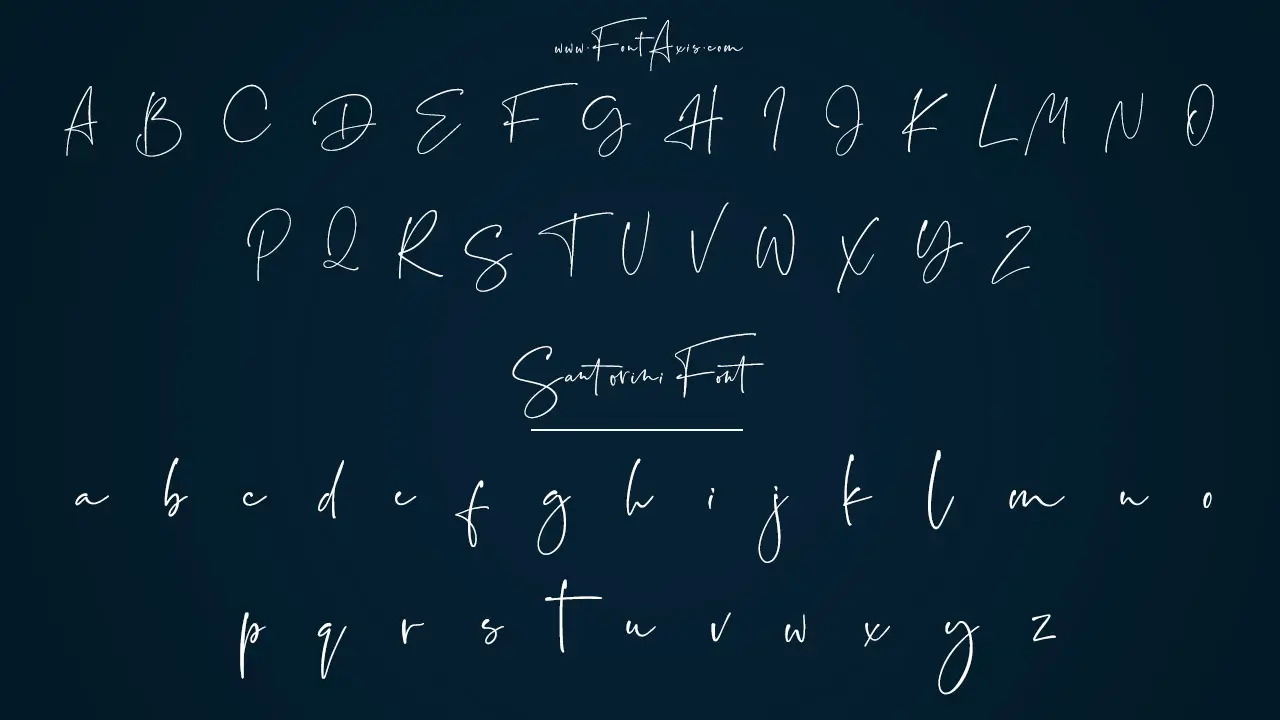 www.FontAxis.com
A B C D E F G H I J K L M N O
P Q R S T U V W X Y Z
Santorini Font
a b c d e f g h i j k l m n o
p q r s t u v w x y z